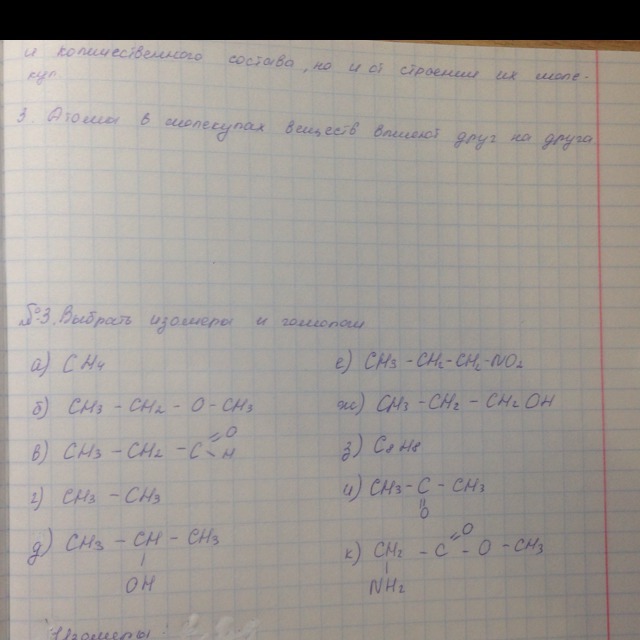 и количественного состава, но и от строения их моле-
кул
3. Атомы в молекулах веществ влияют друг на друга
№3. Выбрать изомеры и гомологи
а) CH4
б) CH3 - CH2 - O - CH3
в) CH3 - CH2 - C =O - H
г) CH3 - CH3
д) CH3 - CH - CH3
OH
е) CH3 - CH2 - CH2 - NO2
ж) CH3 - CH2 - CH2OH
з) C8H8
и) CH3 - C - CH3
O
к) CH2 - C =O - O - CH3
NH2
Изомеры: